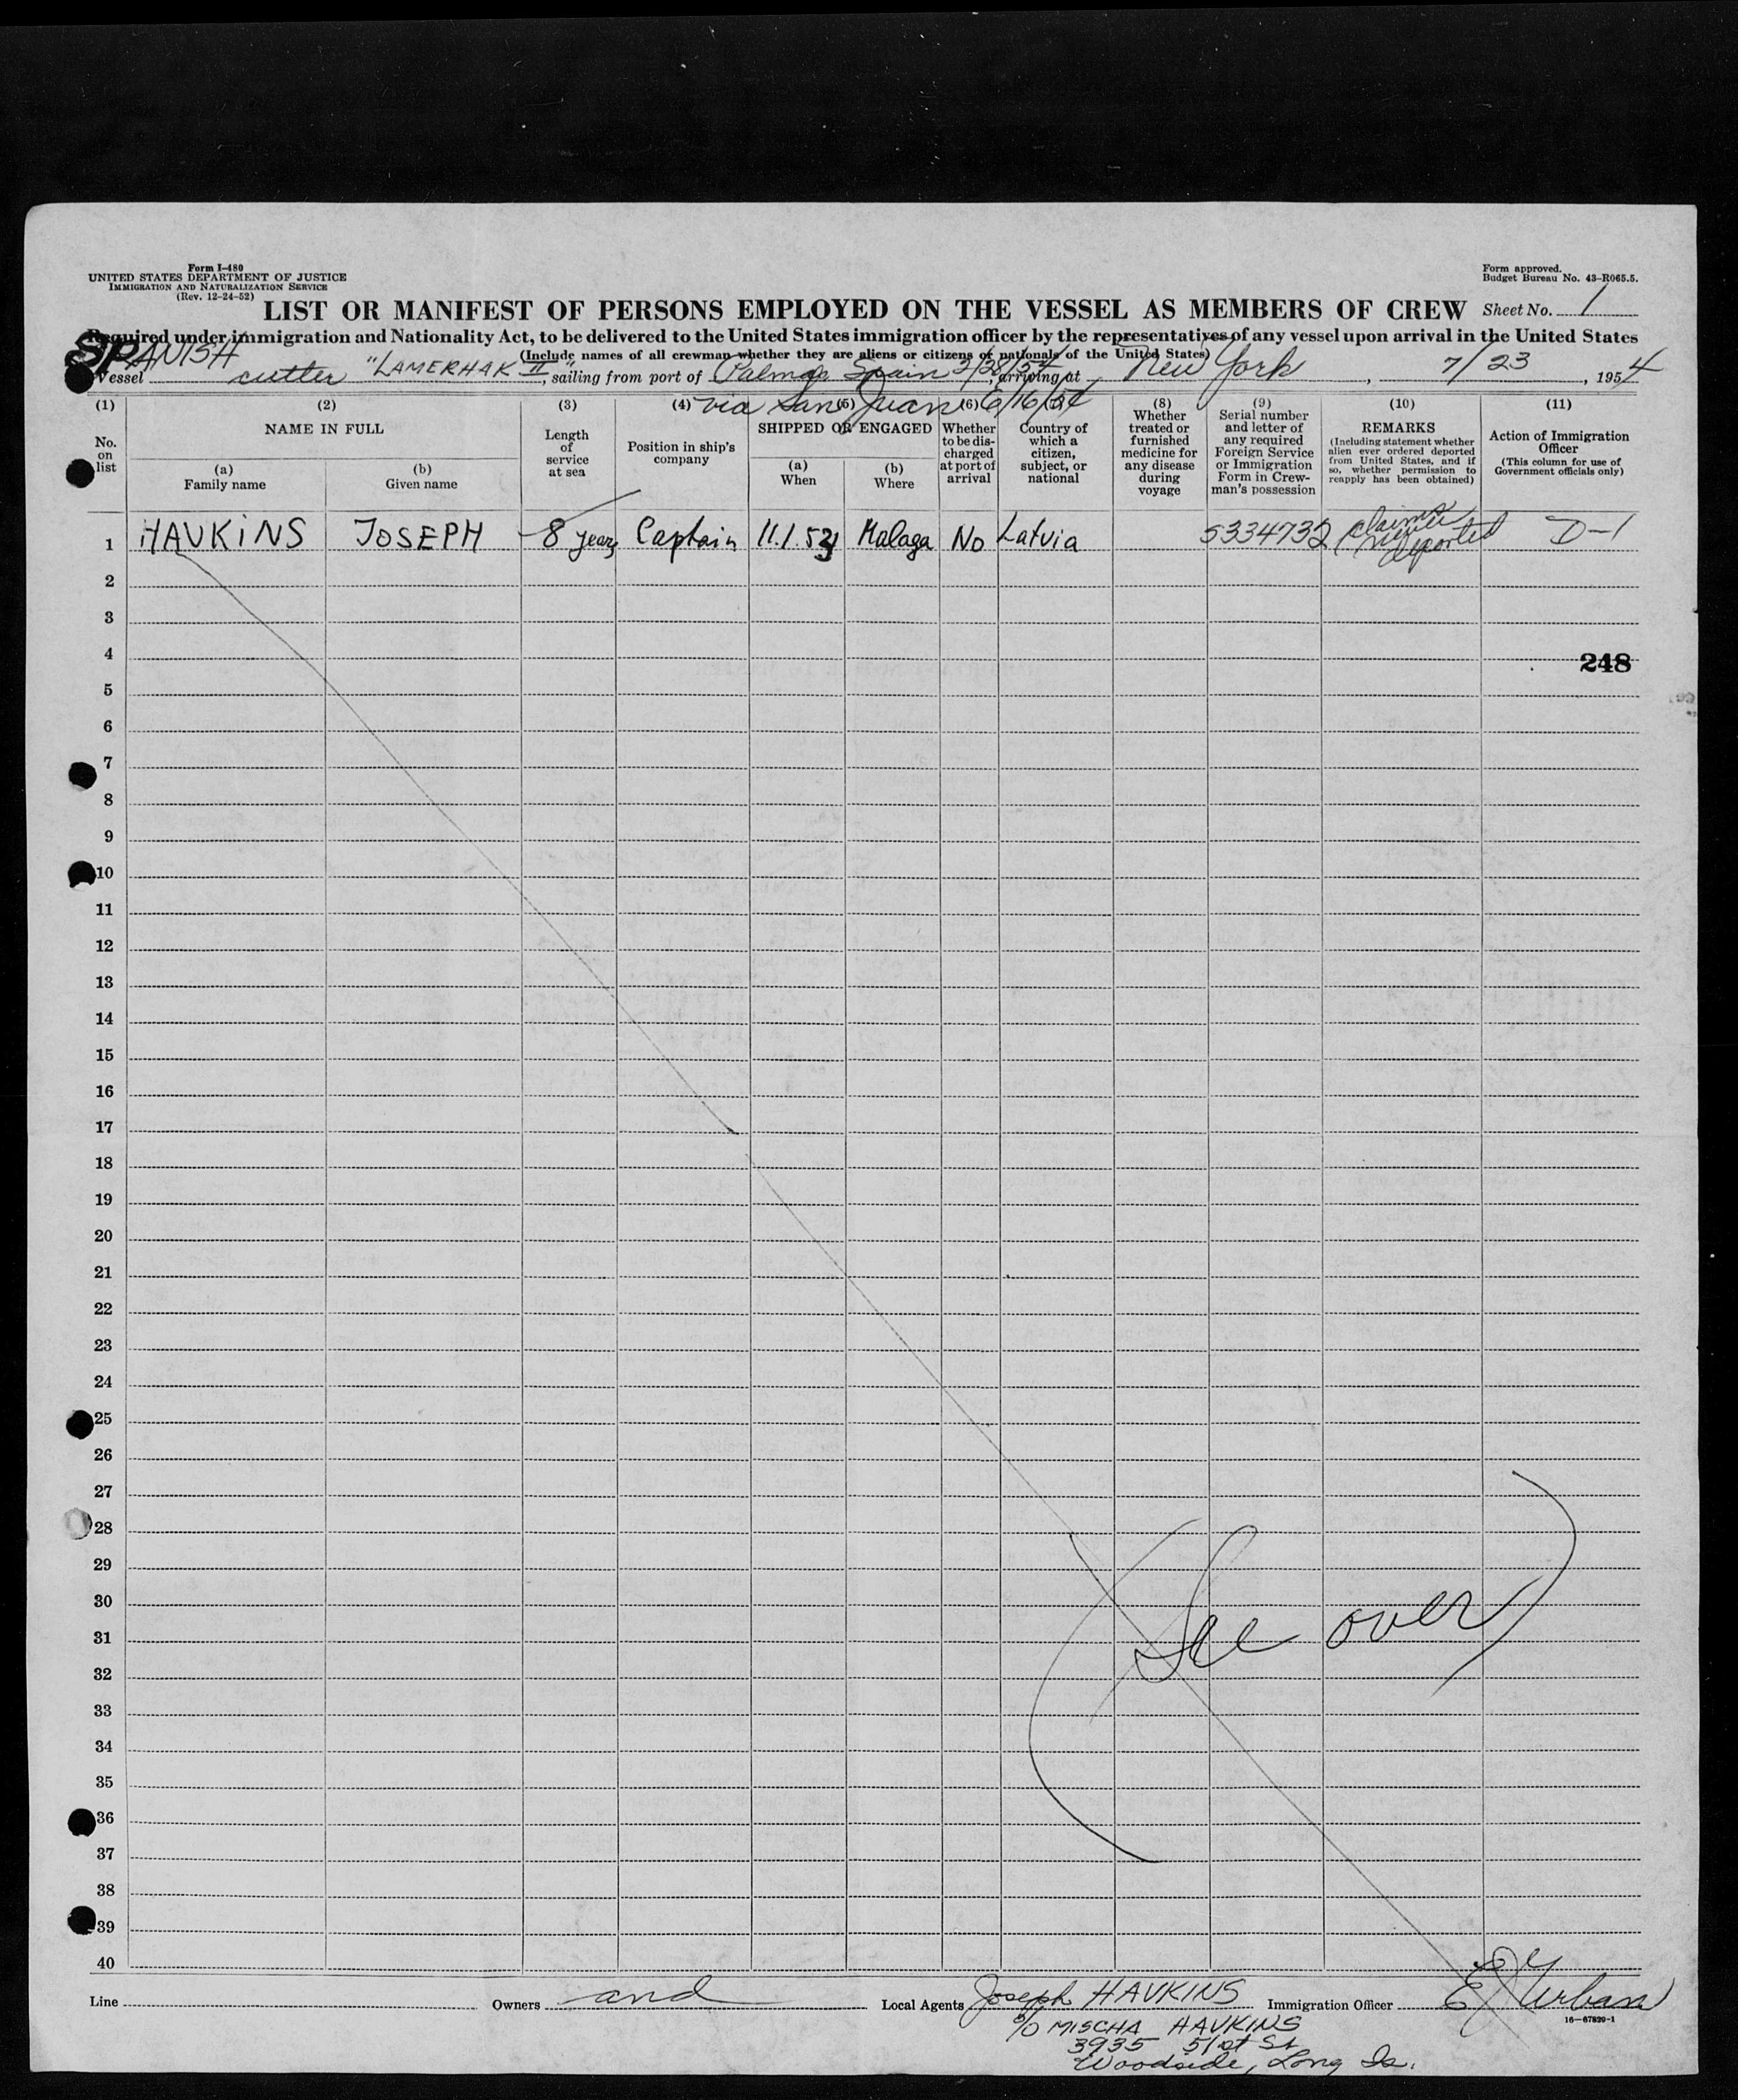 Form I-480
UNITED STATES DEPARTMENT OF JUSTICE
IMMIGRATION AND NATURALIZATION SERVICE
(Rev. 12-24-52)
Form approved.
Budget Bureau No. 43-R065.5.
LIST OR MANIFEST OF PERSONS EMPLOYED ON THE VESSEL AS MEMBERS OF CREW
Sheet No. 1
Required under immigration and Nationality Act, to be delivered to the United States immigration officer by the representatives of any vessel upon arrival in the United States
(Include names of all crewman whether they are aliens or citizens or nationals of the United States)
SPANISH
Vessel cutter "LAMERHAK II", sailing from port of Palma, Spain 2/28/54, arriving at New York, 7/23, 1954
via San Juan 6/16/54
(1) (2) (3) (4) (5) (6) (7) (8) (9) (10) (11)
No. on list
NAME IN FULL
(a) Family name
(b) Given name
Length of service at sea
Position in ship's company
SHIPPED OR ENGAGED
(a) When
(b) Where
Whether to be discharged at port of arrival
Country of which a citizen, subject, or national
Whether treated or furnished medicine for any disease during voyage
Serial number and letter of any required Foreign Service or Immigration Form in Crewman's possession
REMARKS
(Including statement whether alien ever ordered deported from United States, and if so, whether permission to reapply has been obtained)
Action of Immigration Officer
(This column for use of Government officials only)
1 HAVKINS JOSEPH 8 years Captain 11.1.53 Malaga No Latvia 5334732 claims never deported D-1
2
3
4
248
5
6
7
8
9
10
11
12
13
14
15
16
17
18
19
20
21
22
23
24
25
26
27
28
29
30
31
(See over)
32
33
34
35
36
37
38
39
40
Line
Owners and
Local Agents Joseph HAVKINS
Immigration Officer E J Urban
16—67820-1
c/o MISCHA HAVKINS
3935 51st St.
Woodside, Long Is.